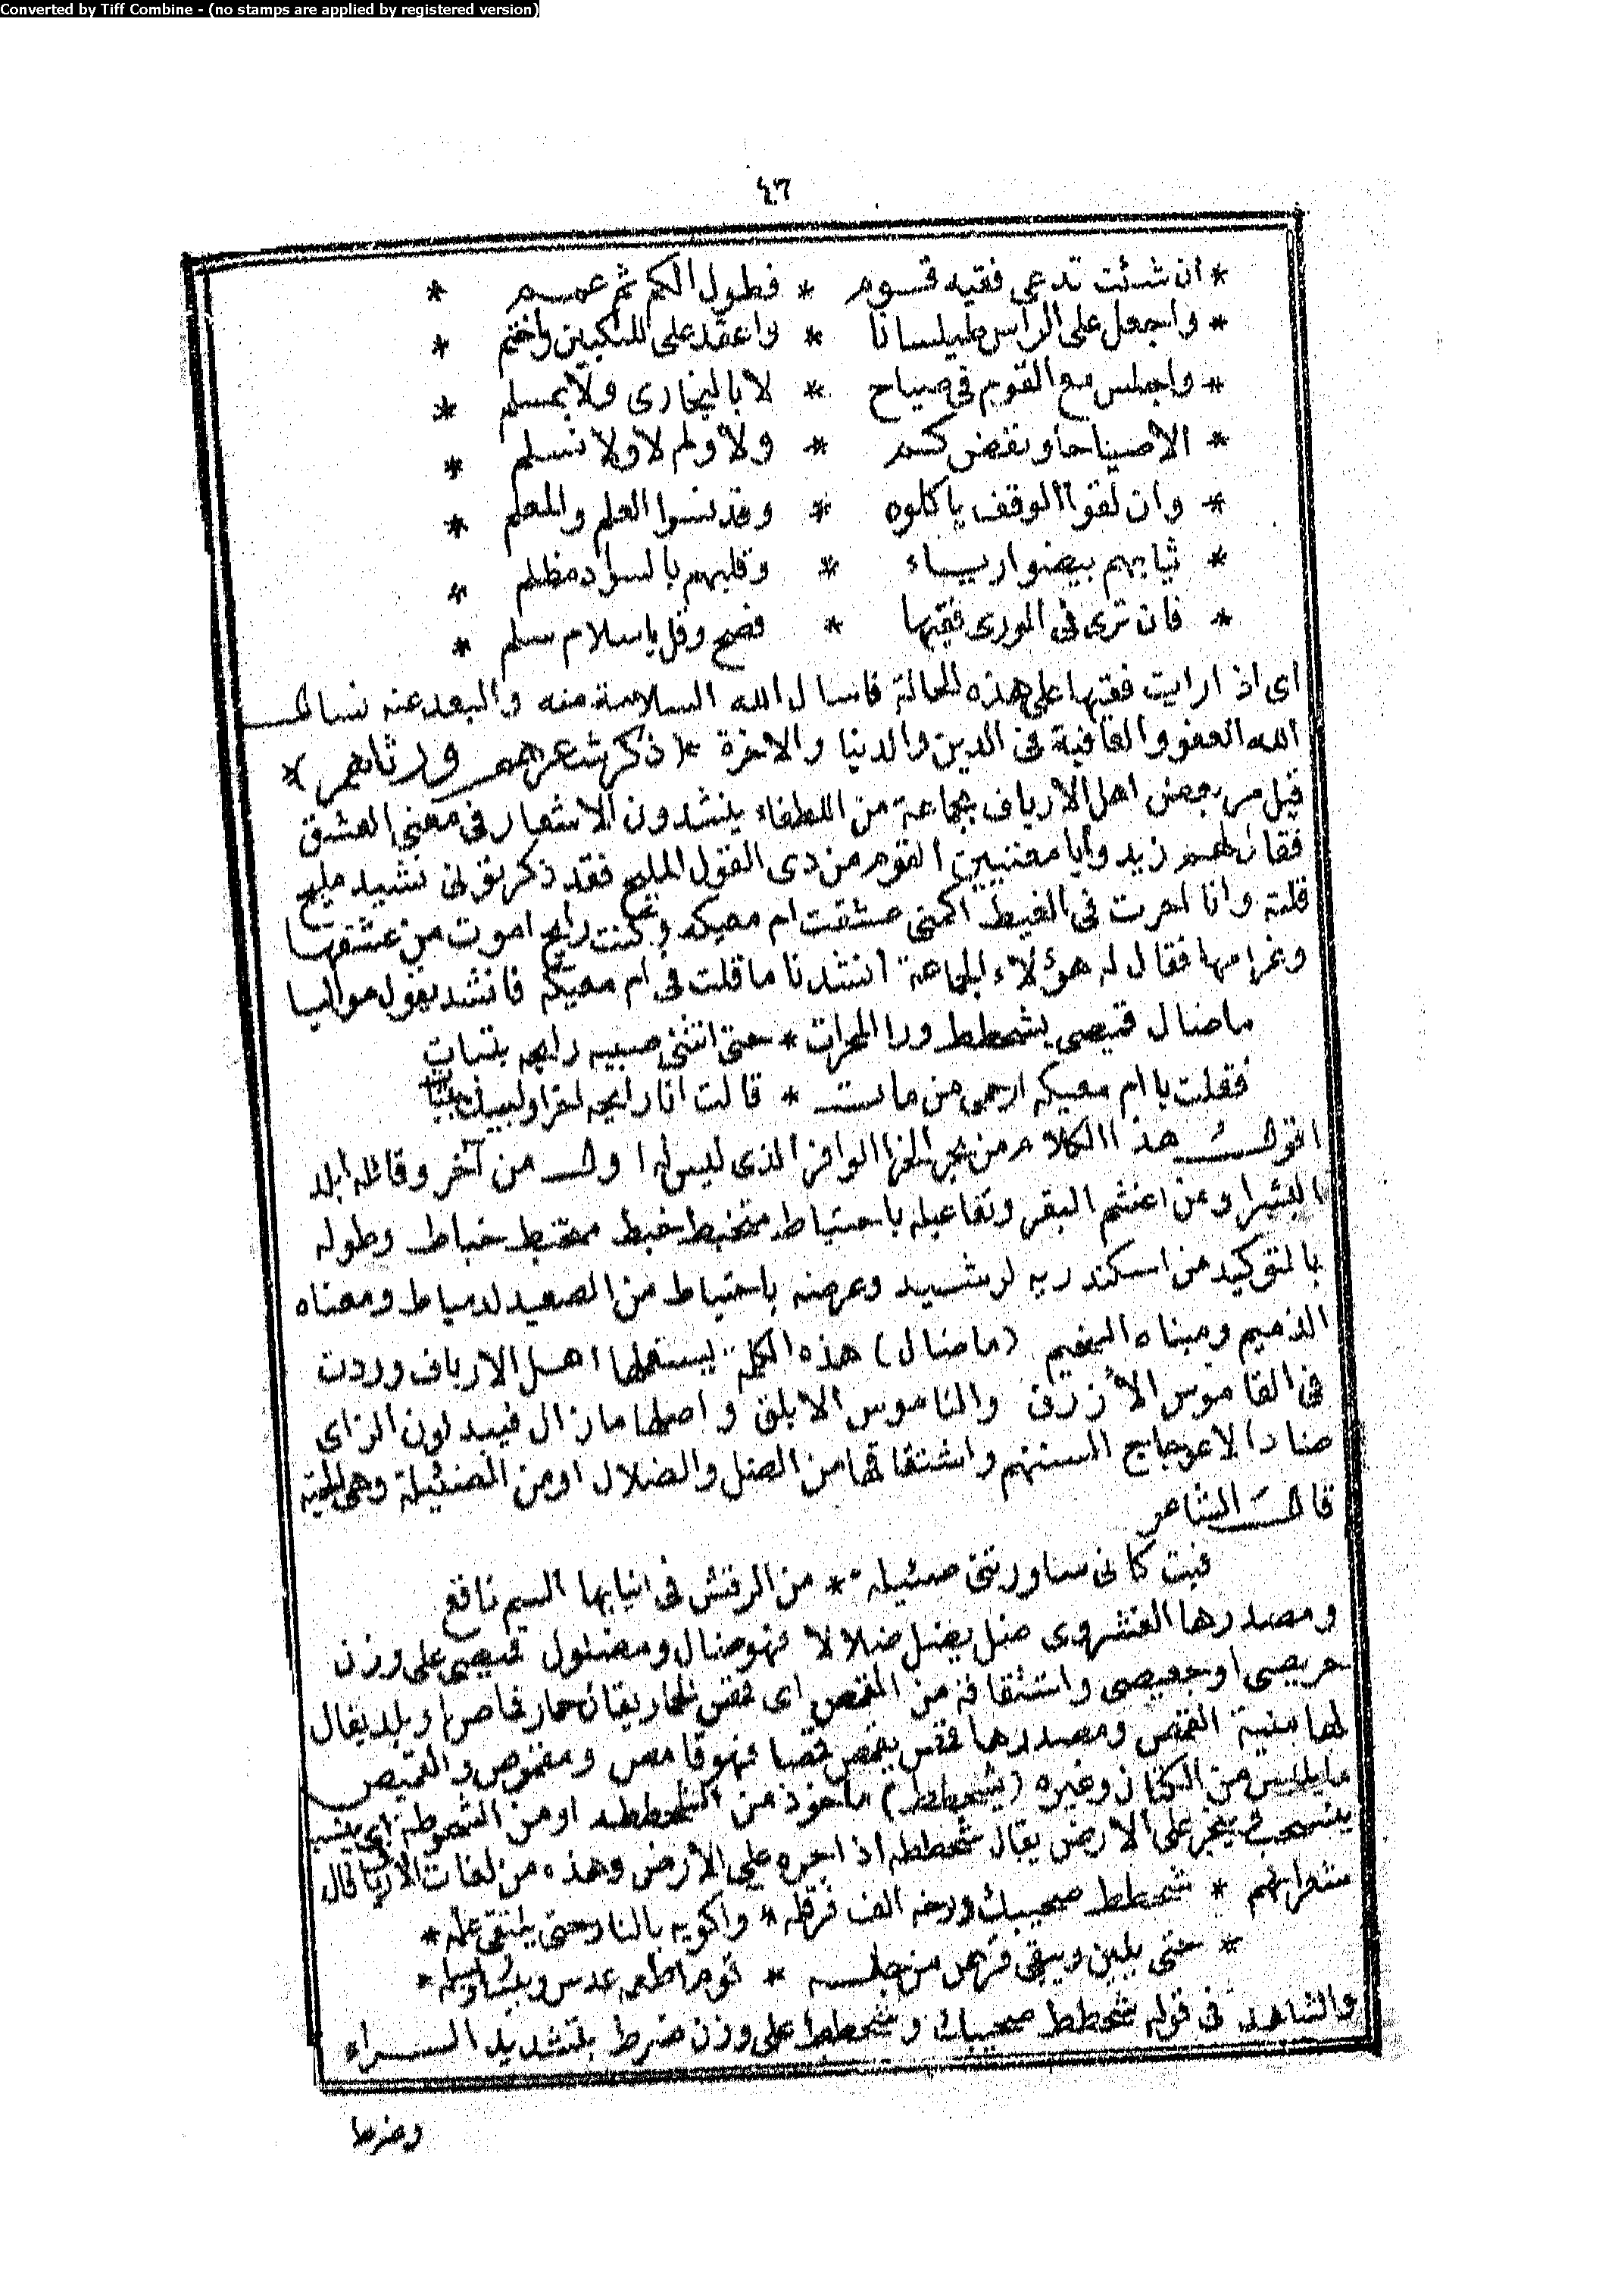 Converted by Tiff Combine - (no stamps are applied by registered version)
٤٦
* ان شئت تدعى فقيه قـوم * فطول الكم ثم عمـم *
* واجعل على الراس طيلسانا * واعقد على المنكبين واختم *
* واجلس مع القوم فى صياح * لا بالبخارى ولا بمسلم *
* الاصياحا ونفض كـم * ولا ولم لا ولا نسلم *
* وان لقوا الوقف ياكلوه * وقد نسوا العلم والمعلم *
* ثيابهم بيضوا ريـاء * وقلبهم بالسواد مظلم *
* فان ترى فى الورى فقيها * فصح وقل ياسلام سلم *
اى اذا رايت فقيها على هذه الحالة فاسال الله السلامة منه والبعد عنه نسال
الله العفو والعافية فى الدين والدنيا والاخرة * (ذكر شعرهم
قيل مر بعض اهل الارياف بجماعة من اللطفاء ينشدون الاشعار فى معنى العشق
فقال لهم زيدوا يا مغنيين القوم من دى القول المليح فقد ذكرتونى نشيد مليح
قلته وانا احرت فى الغيط لكنى عشقت ام معيكه وكنت رايح اموت من عشقها
وغرامها فقال له هؤلاء الجماعة انشدنا ما قلت فى ام معيكه فانشد يقول مواليا
ماضال قميصى يشحطط ورا المحرات * حتى انثنى صبيه رايحه بتبات
فقلت يا ام معيكه ارحمى من مات * قالت انا رايحه اخرا ولبيبك
اقول هذا الكلام من بحر الخرا الوافر الذى ليس له اول من آخر وقائله ابلد
البشر او من اغشم البقر وتفاعيله باحتياط متخبط خبط مختبط خباط وطوله
بالتوكيد من اسكندريه لرشـيد وعرضه باحتياط من الصعيد لدمياط ومعناه
الذميم ومبناه (ماضال) هذه الكلمة يستعملها اهـل الارياف وردت
فى القاموس الأزرق والناموس الابلق واصلها مازال فيبدلون الزاى
ضادا لاعوجاج السنتهم واشتقاقها من الضل والضلال او من الضئيلة وهى الحية
قال الشاعر
فبت كانى ساورتنى ضئيله * من الرقش فى انيابها السم ناقع
ومصدرها الفشروى ضل يضل ضلالا فهو ضال ومضلول قميصى على وزن
حريصى او بعبيصى واشتقاقه من القمص اى قمص الحمار يقال حمار قماص او بلد يقال
لها منية القمص ومصدرها قمص يقمص قمصا فهو قامص ومقموص والقميص
ما يلبس من الكتان وغيره (يشحطط) ماخوذ من الشحططه او من الشحوطه اى
ينسحب وينجر على الارض يقال شحططه اذا جره على الارض وهذه من لغات الارياف قال
شعرايهم * شحطط صحيبك ورنه الف فرقله * واكويه بالنار حتى ينتقى عله *
* حتى يلين ويبقى فرهن من جلـه * قوم اطعمه عدس وبيساره بله *
والشاهد فى قوله شحطط صحيبك وشحطط على وزن ضرط بتشديد الـراء
وضرط